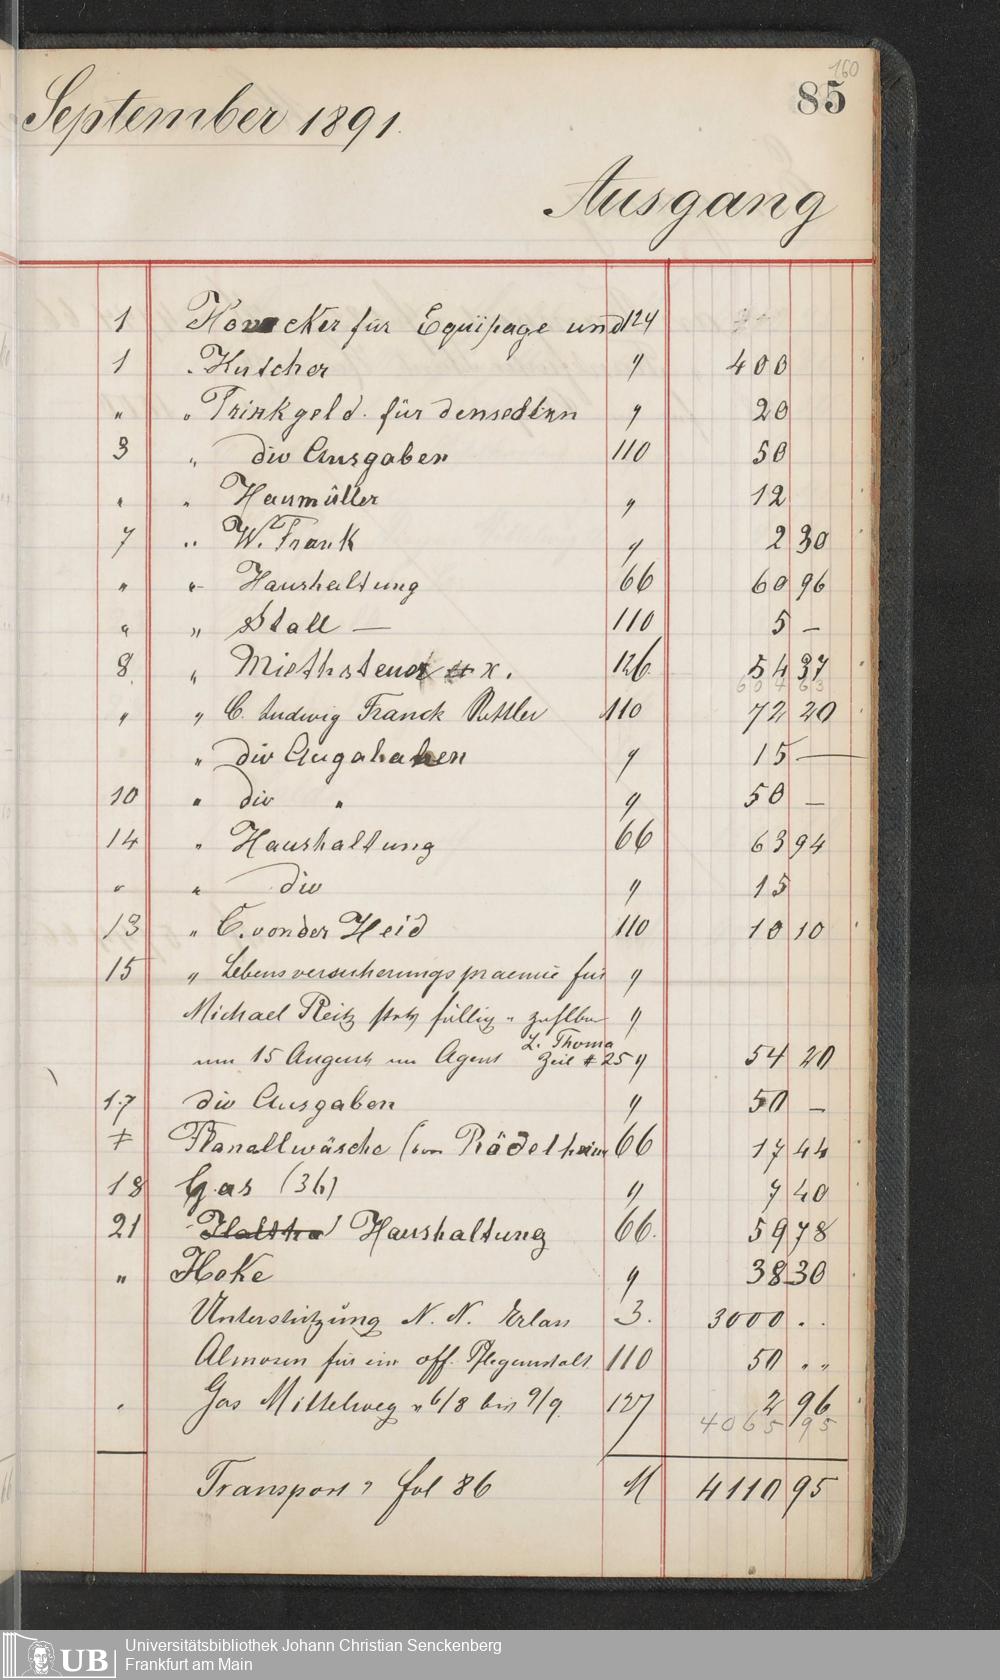 160
85
September 1891.
Ausgang
1 Ho cker für Equipage und 124
1 " Kutscher " 400
" " Trinkgeld für denselben " 20
3 " div Ausgaben 110 50
" " Haumüller " 12
7 " W. Frank " 2 30
" " Haushaltung 66 60 96
" " Stall — 110 5 —
8 " Miethsteuer x. 126. 54 37
60 4 63
" " C. Ludwig Franck 110 72 20
" div Augahaben " 15 —
10 " div " " 50 —
14 " Haushaltung 66 63 94
" " div " 15
13 " C. von der Heid 110 10 10
15 " Lebensversicherungspraemie für "
Michael Reitz fällig " zahlbar "
am 15 August an Agent L. Thoma Zeil # 25 " 54 20
17 div Ausgaben " 50 —
" Flanallwäsche (von Rödelheim 66 17 44
18 Gas (36) " 7 40
21 Haushaltung 66. 59 78
" Hoke " 38 30
Unterstützung N. N. Erlan 3. 3000 . .
Almosen für ein off. Pflegeanstalt 110 50 " "
Gas Mittelweg v 6/8 bis 9/9 127 2 96
4065 95
Transport " fol 86 M 4110 95
UB
Universitätsbibliothek Johann Christian Senckenberg
Frankfurt am Main